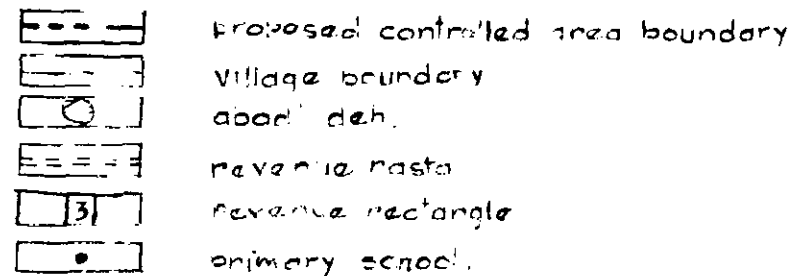 proposed controlled area boundary
village boundary
abadi deh.
revenue rasta
3 revenue rectangle
primary school.